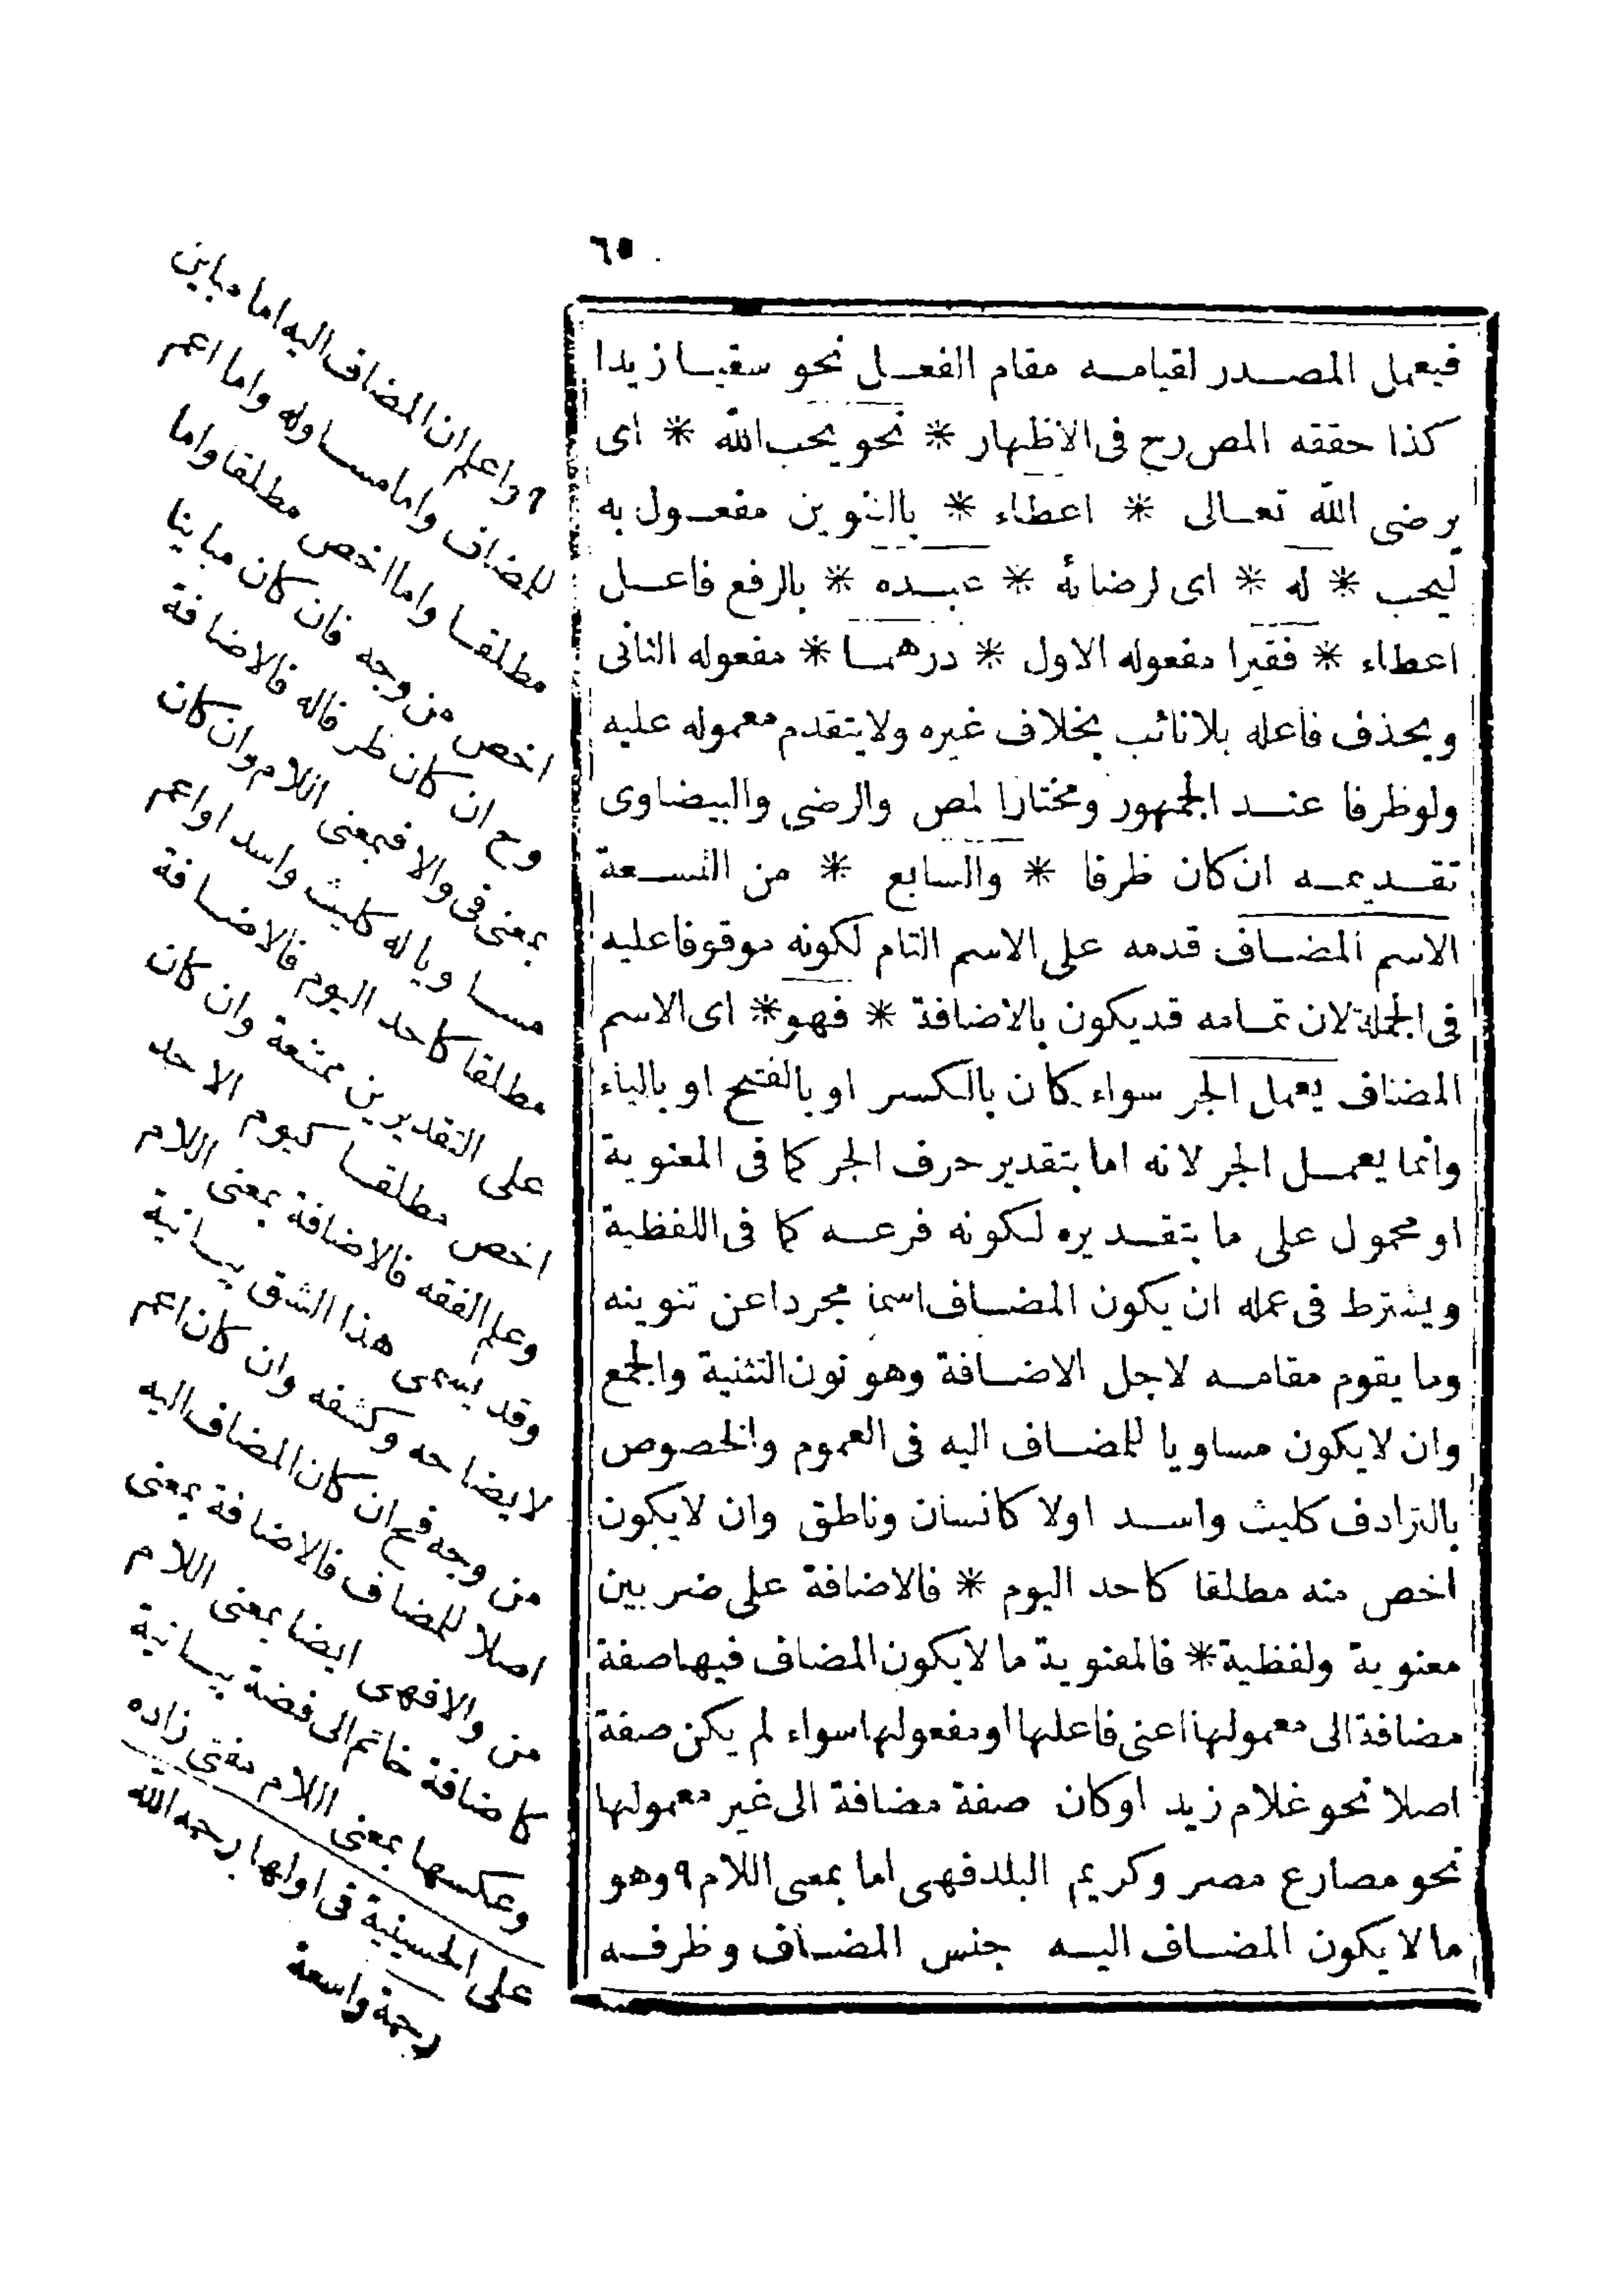 ٦٥
فيعمل المصدر لقيامه مقام الفعل نحو سقيا زيدا
كذا حققه المص رح فى الاظهار * نحو يحب الله * اى
يرضى الله تعالى * اعطاء * بالتنوين مفعول به
ليحب * له * اى لرضائه * عبده * بالرفع فاعل
اعطاء * فقيرا مفعوله الاول * درهما * مفعوله الثانى
ويحذف فاعله بلا نائب بخلاف غيره ولا يتقدم معموله عليه
ولوظرفا عند الجمهور ومختارا لمص والرضى والبيضاوى
تقديمه ان كان ظرفا * والسابع * من التسعة
الاسم المضاف قدمه على الاسم التام لكونه موقوفا عليه
فى الجملة لان تمامه قد يكون بالاضافة * فهو * اى الاسم
المضاف يعمل الجر سواء كان بالكسر او بالفتح او بالياء
وانما يعمل الجر لانه اما بتقدير حرف الجر كما فى المعنوية
او محمول على ما بتقديره لكونه فرعه كما فى اللفظية
ويشترط فى عمله ان يكون المضاف اسما مجردا عن تنوينه
وما يقوم مقامه لاجل الاضافة وهو نون التثنية والجمع
وان لا يكون مساويا للمضاف اليه فى العموم والخصوص
بالترادف كليث واسد اولا كانسان وناطق وان لا يكون
اخص منه مطلقا كاحد اليوم * فالاضافة على ضربين
معنوية ولفظية * فالمعنوية ما لا يكون المضاف فيها صفة
مضافة الى معمولها اعنى فاعلها او مفعولها سواء لم يكن صفة
اصلا نحو غلام زيد اوكان صفة مضافة الى غير معمولها
نحو مصارع مصر وكريم البلد فهى اما بمعنى اللام ٩ وهو
ما لا يكون المضاف اليه جنس المضاف وظرفه
٩ واعلم ان المضاف اليه اما مباين
للمضاف واما مساوله واما اعم
مطلقا واما اخص مطلقا واما
اخص من وجه فان كان مباينا
وح ان كان ظرفاله فالاضافة
بمعنى فى والا فبمعنى اللام وان كان
مساويا له كليث واسد او اعم
مطلقا كاحد اليوم فالاضافة
على التقديرين ممتنعة وان كان
اخص مطلقا كيوم الاحد
وعلم الفقه فالاضافة بمعنى اللام
وقد يسمى هذا الشق بيانية
لايضاحه وكشفه وان كان اعم
من وجه فح ان كان المضاف اليه
اصلا للمضاف فالاضافة بمعنى
من والا فهى ايضا بمعنى اللام
كاضافة خاتم الى فضة بيانية
وعكسها بمعنى اللام مفتى زاده
على الحسينية فى اولها رحمه الله
رحمة واسعة